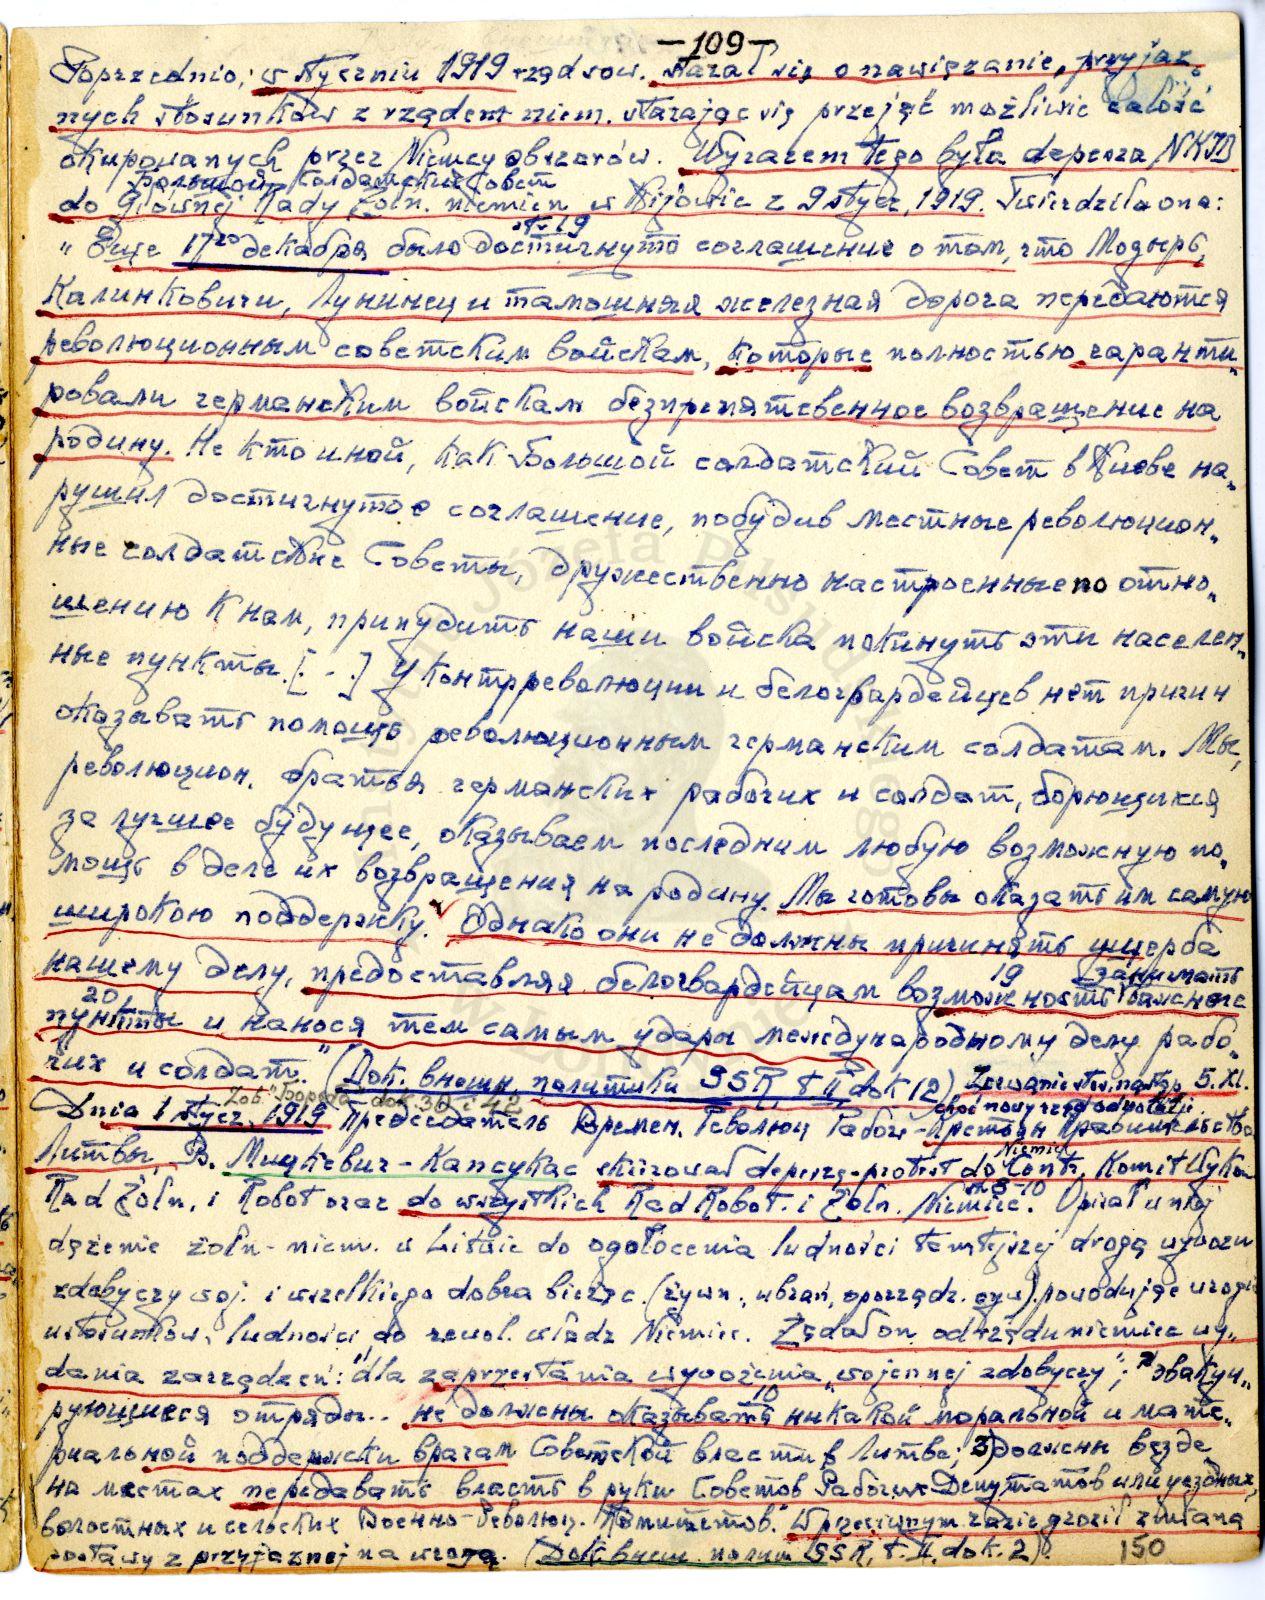 —109—
Poprzednio, w styczniu 1919 rząd sow. starał się o nawiązanie przyjaz
nych stosunków z rządem niem. starając się przejąć możliwie całość
okupowanych przez Niemcy obszarów. Wyrazem tego była depesza NKID
Большой солдатский Совет
do Głównej Rady Żołn. niemiec w Kijowie z 9 stycz. 1919. Twierdziła ona:
str 19
" Еще 17го декабря было достигнуто соглашение о том, что Мозырь,
Калинковичи, Лунинец и тамошняя железная дорога передаются
революционным советским войскам, которые полностью гаранти„
ровали германским войскам безпрепятственное возвращение на
родину. Не кто иной, как Большой солдатский Совет в Киеве на„
рушил достигнутое соглашение, побудив местные революцион„
ные солдатские Советы, дружественно настроенные по отно„
шению к нам, принудить наши войска покинуть эти населен„
ные пункты. [. - .] У контрреволюции и белогвардейцев нет причин
оказывать помощь революционным германским солдатам. Мы,
революцион. братья германских рабочих и солдат, борющихся
за лучшее будущее, оказываем последним любую возможную по„
мощь в деле их возвращения на родину. Мы готовы оказать им самую
широкою поддержку. Однако они не должны причинять ущерба
нашему делу, предоставляя белогвардейцам возможность важные
19 занимать
20,
пункты и нанося тем самым удары международному делу рабо„
чих и солдат." (Док. внешн. политики SSR, t II, dok 12) Zerwanie stos. nastąp 5. XI.
Zob. "Борьба" dok 30 i 42
choć nowy rząd odwołał j.
Dnia 1 stycz. 1919 Председатель Времен. Революц Рабоч-Крестьян Правительства
Литвы, В. Мицкевич-Капсукас skierował depeszę-protest do Centr. Komit Wyko
Niemiec
Rad Żołn. i Robot oraz do wszystkich Rad Robot. i Żołn. Niemiec. Opisał w niej
str 8-10
dążenie żołn-niem. w Litwie do ogołocenia ludności tamtejszej drogą wywozu
zdobyczy woj. i wszelkiego dobra bieżąc. (żywn., ubrań, oporządz. czw) powodując wrogi
ustosunków. ludności do rewol. władz Niemiec. Żądał on od rządu niemiec wy„
dania zarządzeń: "dla zaprzestania wywożenia "wojennej zdobyczy"; 2) "эвакуи„
10
рующиеся отряды.. не должны оказывать никакой моральной и мате„
риальной поддержки врагам Советской власти в Литве; 3) должны везде
на местах передавать власть в руки Советов Рабочих Депутатов или уездных,
волостных и сельских Военно-Революц. Комитетов." W przeciwnym razie groził zmianą
postawy z przyjaznej na wrogą. (Док. внеш полит SSR, t. II, dok. 2). 150